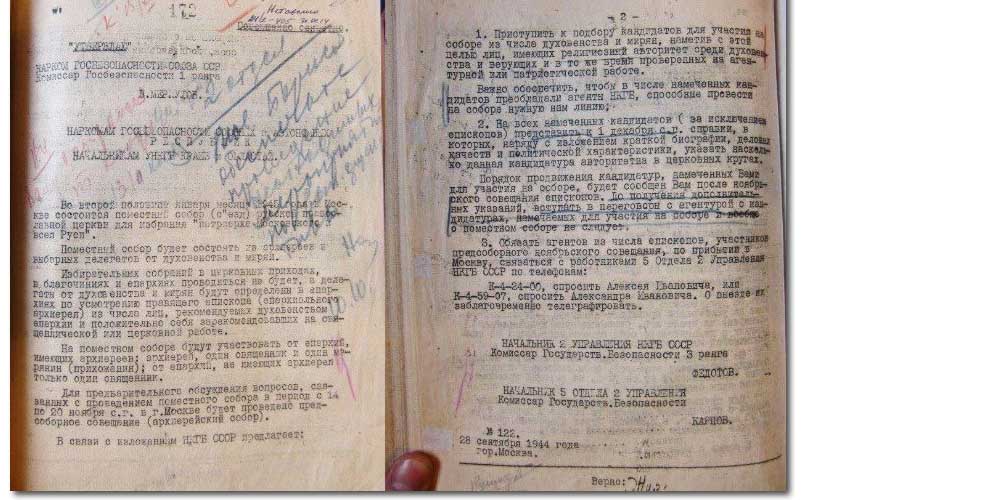 172
Совершенно секретно.
"УТВЕРЖДАЮ"
НАРКОМ ГОСБЕЗОПАСНОСТИ СОЮЗА ССР
Комиссар Госбезопасности 1 ранга
В.МЕРКУЛОВ.
НАРКОМАМ ГОСБЕЗОПАСНОСТИ СОЮЗНЫХ И АВТОНОМНЫХ
РЕСПУБЛИК
НАЧАЛЬНИКАМ УНКГБ КРАЕВ И ОБЛАСТЕЙ.
2 отдел
Во второй половине января месяца 1945 года в Мос-
кве состоится поместный собор (с"езд) русской правос-
лавной церкви для избрания "патриарха Московского и
всея Руси".
Поместный собор будет состоять из архиереев и
выборных делегатов от духовенства и мирян.
Избирательных собраний в церковных приходах,
благочиниях и епархиях проводиться не будет, а деле-
гаты от духовенства и мирян будут определены в епар-
хиях по усмотрению правящего епископа (епархиального
архиерея) из числа лиц, рекомендуемых духовенством
епархии и положительно себя зарекомендовавших на свя-
щеннической или церковной работе.
На поместном соборе будут участвовать от епархий,
имеющих архиереев: архиерей, один священник и один ми-
рянин (прихожанин); от епархий, не имеющих архиерея -
только один священник.
Для предварительного обсуждения вопросов, свя-
занных с проведением поместного собора в период с 14
по 20 ноября с.г. в г.Москве будет проведено пред-
соборное совещание (архиерейский собор).
В связи с изложенным НКГБ СССР предлагает:
- 2 -
1. Приступить к подбору кандидатов для участия на
соборе из числа духовенства и мирян, наметив с этой
целью лиц, имеющих религиозный авторитет среди духовен-
ства и верующих и в то же время проверенных на аген-
турной или патриотической работе.
Важно обеспечить, чтобы в числе намеченных кан-
дидатов преобладали агенты НКГБ, способные провести
на соборе нужную нам линию.
2. На всех намеченных кандидатов ( за исключением
епископов) представить к 1 декабря с.г. справки, в
которых, наряду с изложением краткой биографии, деловых
качеств и политической характеристики, указать насколь-
ко данная кандидатура авторитетна в церковных кругах.
Порядок продвижения кандидатур, намеченных Вами
для участия на соборе, будет сообщен Вам после ноябрь-
ского совещания епископов. До получения дополнитель-
ных указаний, вступать в переговоры с агентурой о кан-
дидатурах, намечаемых для участия на соборе и вообще
о поместном соборе не следует.
3. Обязать агентов из числа епископов, участников
предсоборного ноябрьского совещания, по прибытии в
Москву, связаться с работниками 5 Отдела 2 Управления
НКГБ СССР по телефонам:
К-4-24-00, спросить Алексея Ивановича, или
К-4-59-07, спросить Александра Ивановича. О выезде их
заблаговременно телеграфировать.
НАЧАЛЬНИК 2 УПРАВЛЕНИЯ НКГБ СССР
Комиссар Государств.Безопасности 3 ранга
ФЕДОТОВ.
НАЧАЛЬНИК 5 ОТДЕЛА 2 УПРАВЛЕНИЯ
Комиссар Государств.Безопасности
КАРПОВ.
№ 122.
28 сентября 1944 года
гор.Москва.
Верно: